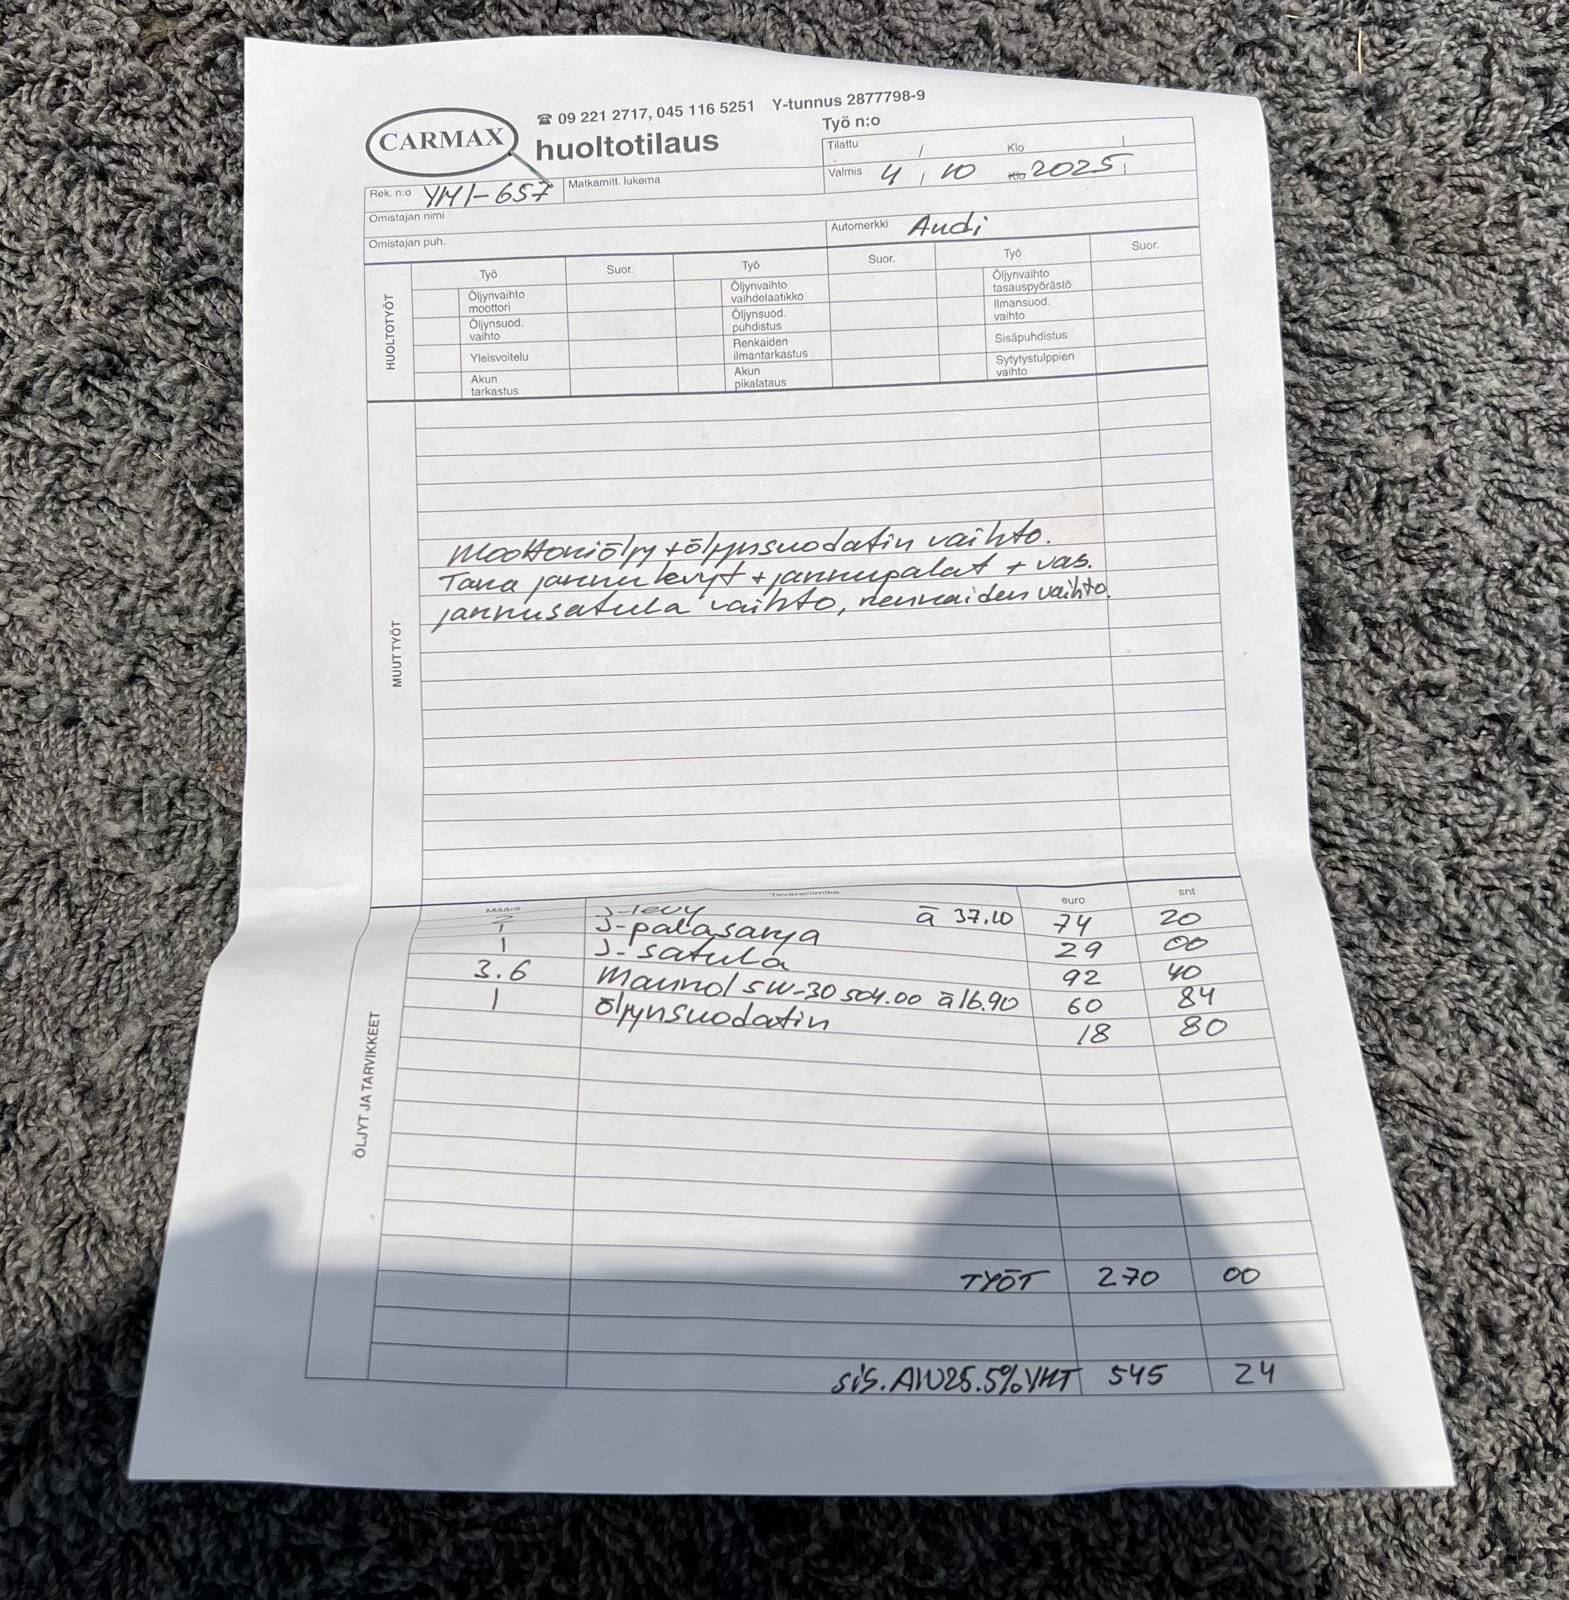 CARMAX
☎ 09 221 2717, 045 116 5251 Y-tunnus 2877798-9
huoltotilaus
Työ n:o
Tilattu / Klo
Valmis 4 / 10 Klo 2025
Rek. n:o YMI-657 Matkamitt. lukema
Omistajan nimi
Omistajan puh.
Automerkki Audi
HUOLTOTYÖT
Työ Suor. Työ Suor. Työ Suor.
Öljynvaihto moottori Öljynvaihto vaihdelaatikko Öljynvaihto tasauspyörästö
Öljynsuod. vaihto Öljynsuod. puhdistus Ilmansuod. vaihto
Yleisvoitelu Renkaiden ilmantarkastus Sisäpuhdistus
Akun tarkastus Akun pikalataus Sytytystulppien vaihto
MUUT TYÖT
Moottoriöljy + öljynsuodatin vaihto.
Taka jarrulevyt + jarrupalat + vas.
jarrusatula vaihto, renkaiden vaihto.
ÖLJYT JA TARVIKKEET
Määrä Tavaranimike euro snt
2 J-levy à 37.10 74 20
1 J-palasarja 29 00
1 J-satula 92 40
3.6 Mannol 5W-30 504.00 à 16.90 60 84
1 öljynsuodatin 18 80
TYÖT 270 00
sis. ALV 25.5% YHT 545 24